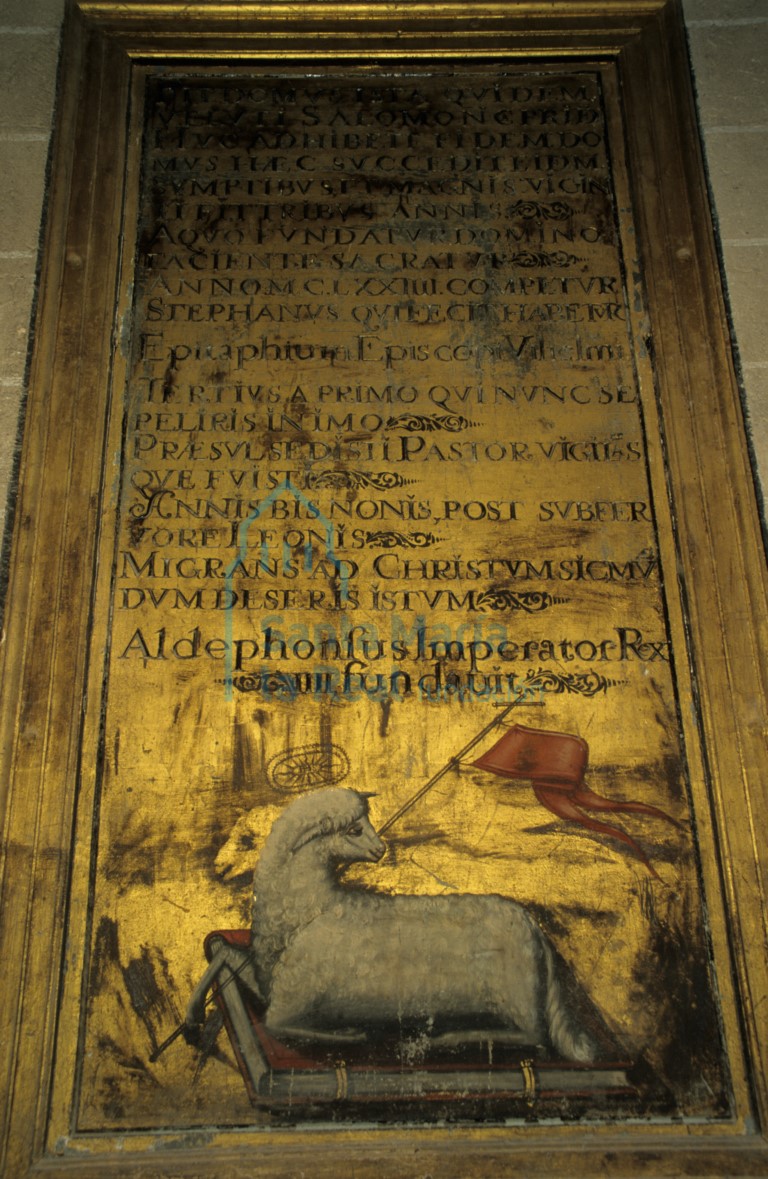 FIT DOMVS ISTA QVIDEM
VELVTI SALOMONIS PRID
HVC ADHIBETE FIDEM DO
MVS HÆC SVCCEDIT EIDM
SVMPTIBVS ET MAGNIS VIGIN
TI FIT TRIBVS ANNIS
A QVO FVNDATVR DOMINO
FACIENTE SACRATVR
ANNO M.C.LXXIIII. COMPLTVR
STEPHANVS QVI FECIT HABETVR
Epitaphium Episcopi Vilielmi
TERTIVS A PRIMO QVI NVNC SE
PELIRIS IN IMO
PRÆSVL SEDISTI PASTOR VIGIL
QVE FVISTI
ANNIS BIS NONIS, POST SVBFER
VORE LEONIS
MIGRANS AD CHRISTVM SIC MV
DVM DESERIS ISTVM
Aldephonsus Imperator Rex
IIII fundauit
Santa María